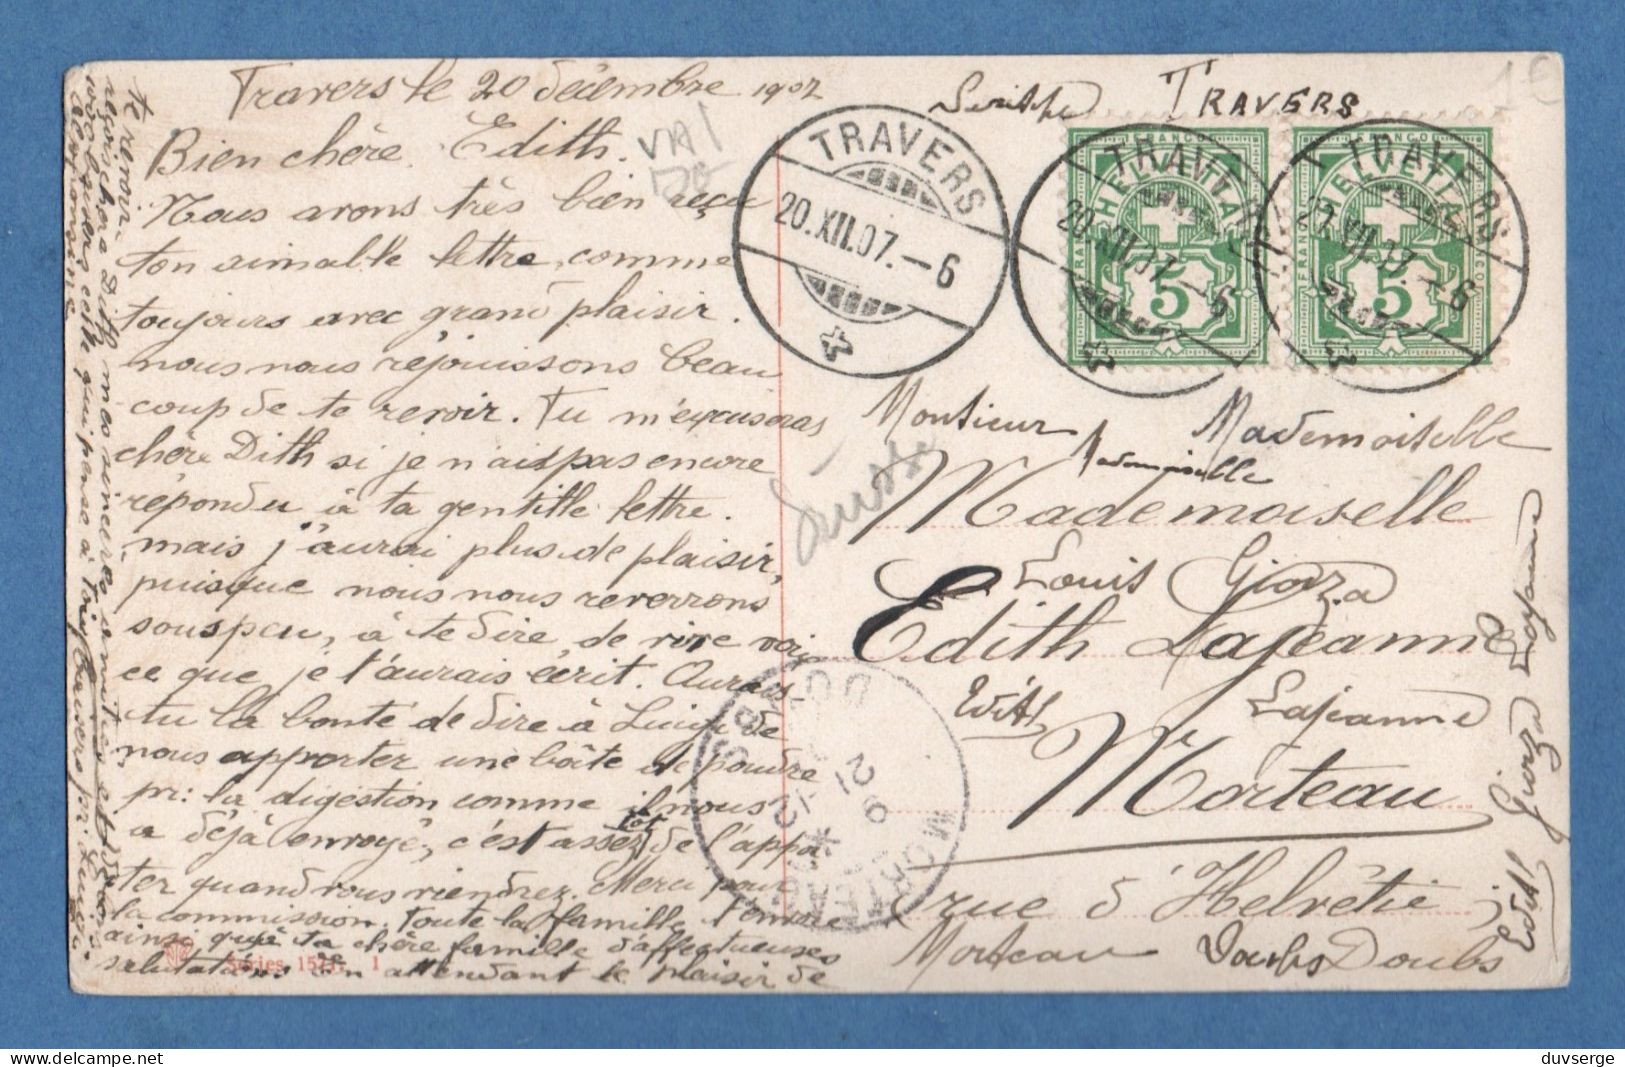 Travers le 20 décembre 1907
Bien chère Edith.
Nous avons très bien reçu
ton aimable lettre, comme
toujours avec grand plaisir.
nous nous réjouissons beau
coup de te revoir. Tu m'excuseras
chère Dith si je n'ais pas encore
répondu à ta gentille lettre.
mais j'aurai plus de plaisir,
puisque nous nous reverrons
sous peu, à te dire, de vive voix
ce que je t'aurais écrit. Aurais
tu la bonté de dire à Luigi de
nous apporter une boîte de poudre
pr: la digestion comme il nous
a déjà envoyé, c'est assez tôt de l'appor
ter quand vous viendrez. Merci pour
la commission. Toute la famille t'envoie
ainsi qu'à ta chère famille d'affectueuses
salutations. En attendant le plaisir de
te revoir
reçois chère Dith mes sincères amitiés et bons
baisers celle qui pense à toi,
Series 1521. 1
VAl
Suisse
TRAVERS
20.XII.07.-6
TRAVERS
TRAVERS
20.XII.07.-6
TRAVERS
20.XII.07.-6
FRANCO
HELVETIA
5
FRANCO
HELVETIA
5
1€
Monsieur Mademoiselle
Mademoiselle
Mademoiselle
Louis Giorza
Edith Lajeanne
Edith Lajeanne
Morteau
rue d'Helvétie
Morteau Doubs Doubs
Edith Giorza Lajeanne
MORTEAU
DOUBS
21
duvserge